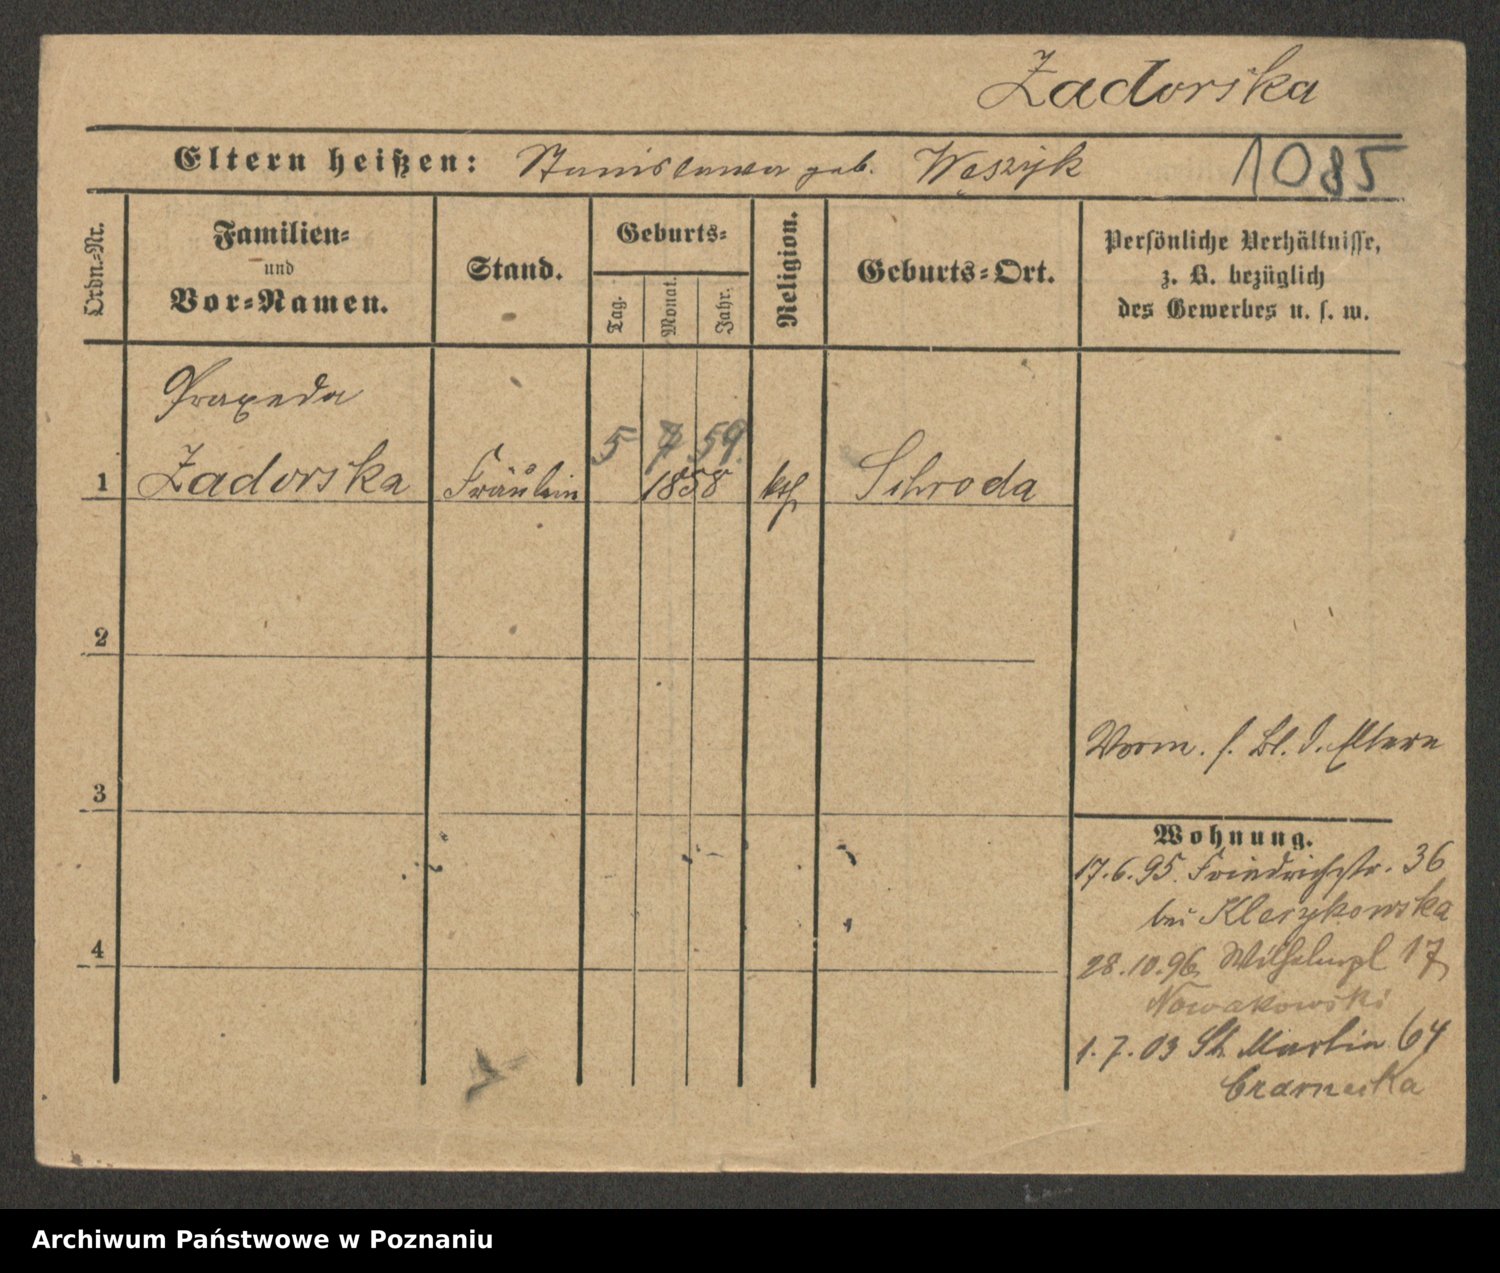 Zadorska
Eltern heißen: Stanislawa geb. Węszyk
1085
Ordn.-Nr.
Familien-
und
Vor-Namen.
Stand.
Geburts-
Tag.
Monat.
Jahr.
Religion.
Geburts-Ort.
Persönliche Verhältnisse,
z. B. bezüglich
des Gewerbes u. s. w.
Praxeda
5 7 59.
1 Zadorska Fräulein 1858 kth Schroda
2
3
4
Vorm. s. Bl. d. Eltern
Wohnung.
17.6.95. Friedrichstr. 36
bei Kleszykowska
28.10.96 Wilhelmpl 17
Nowakowski
1.7.03 St. Martin 64
Czarnecka
Archiwum Państwowe w Poznaniu